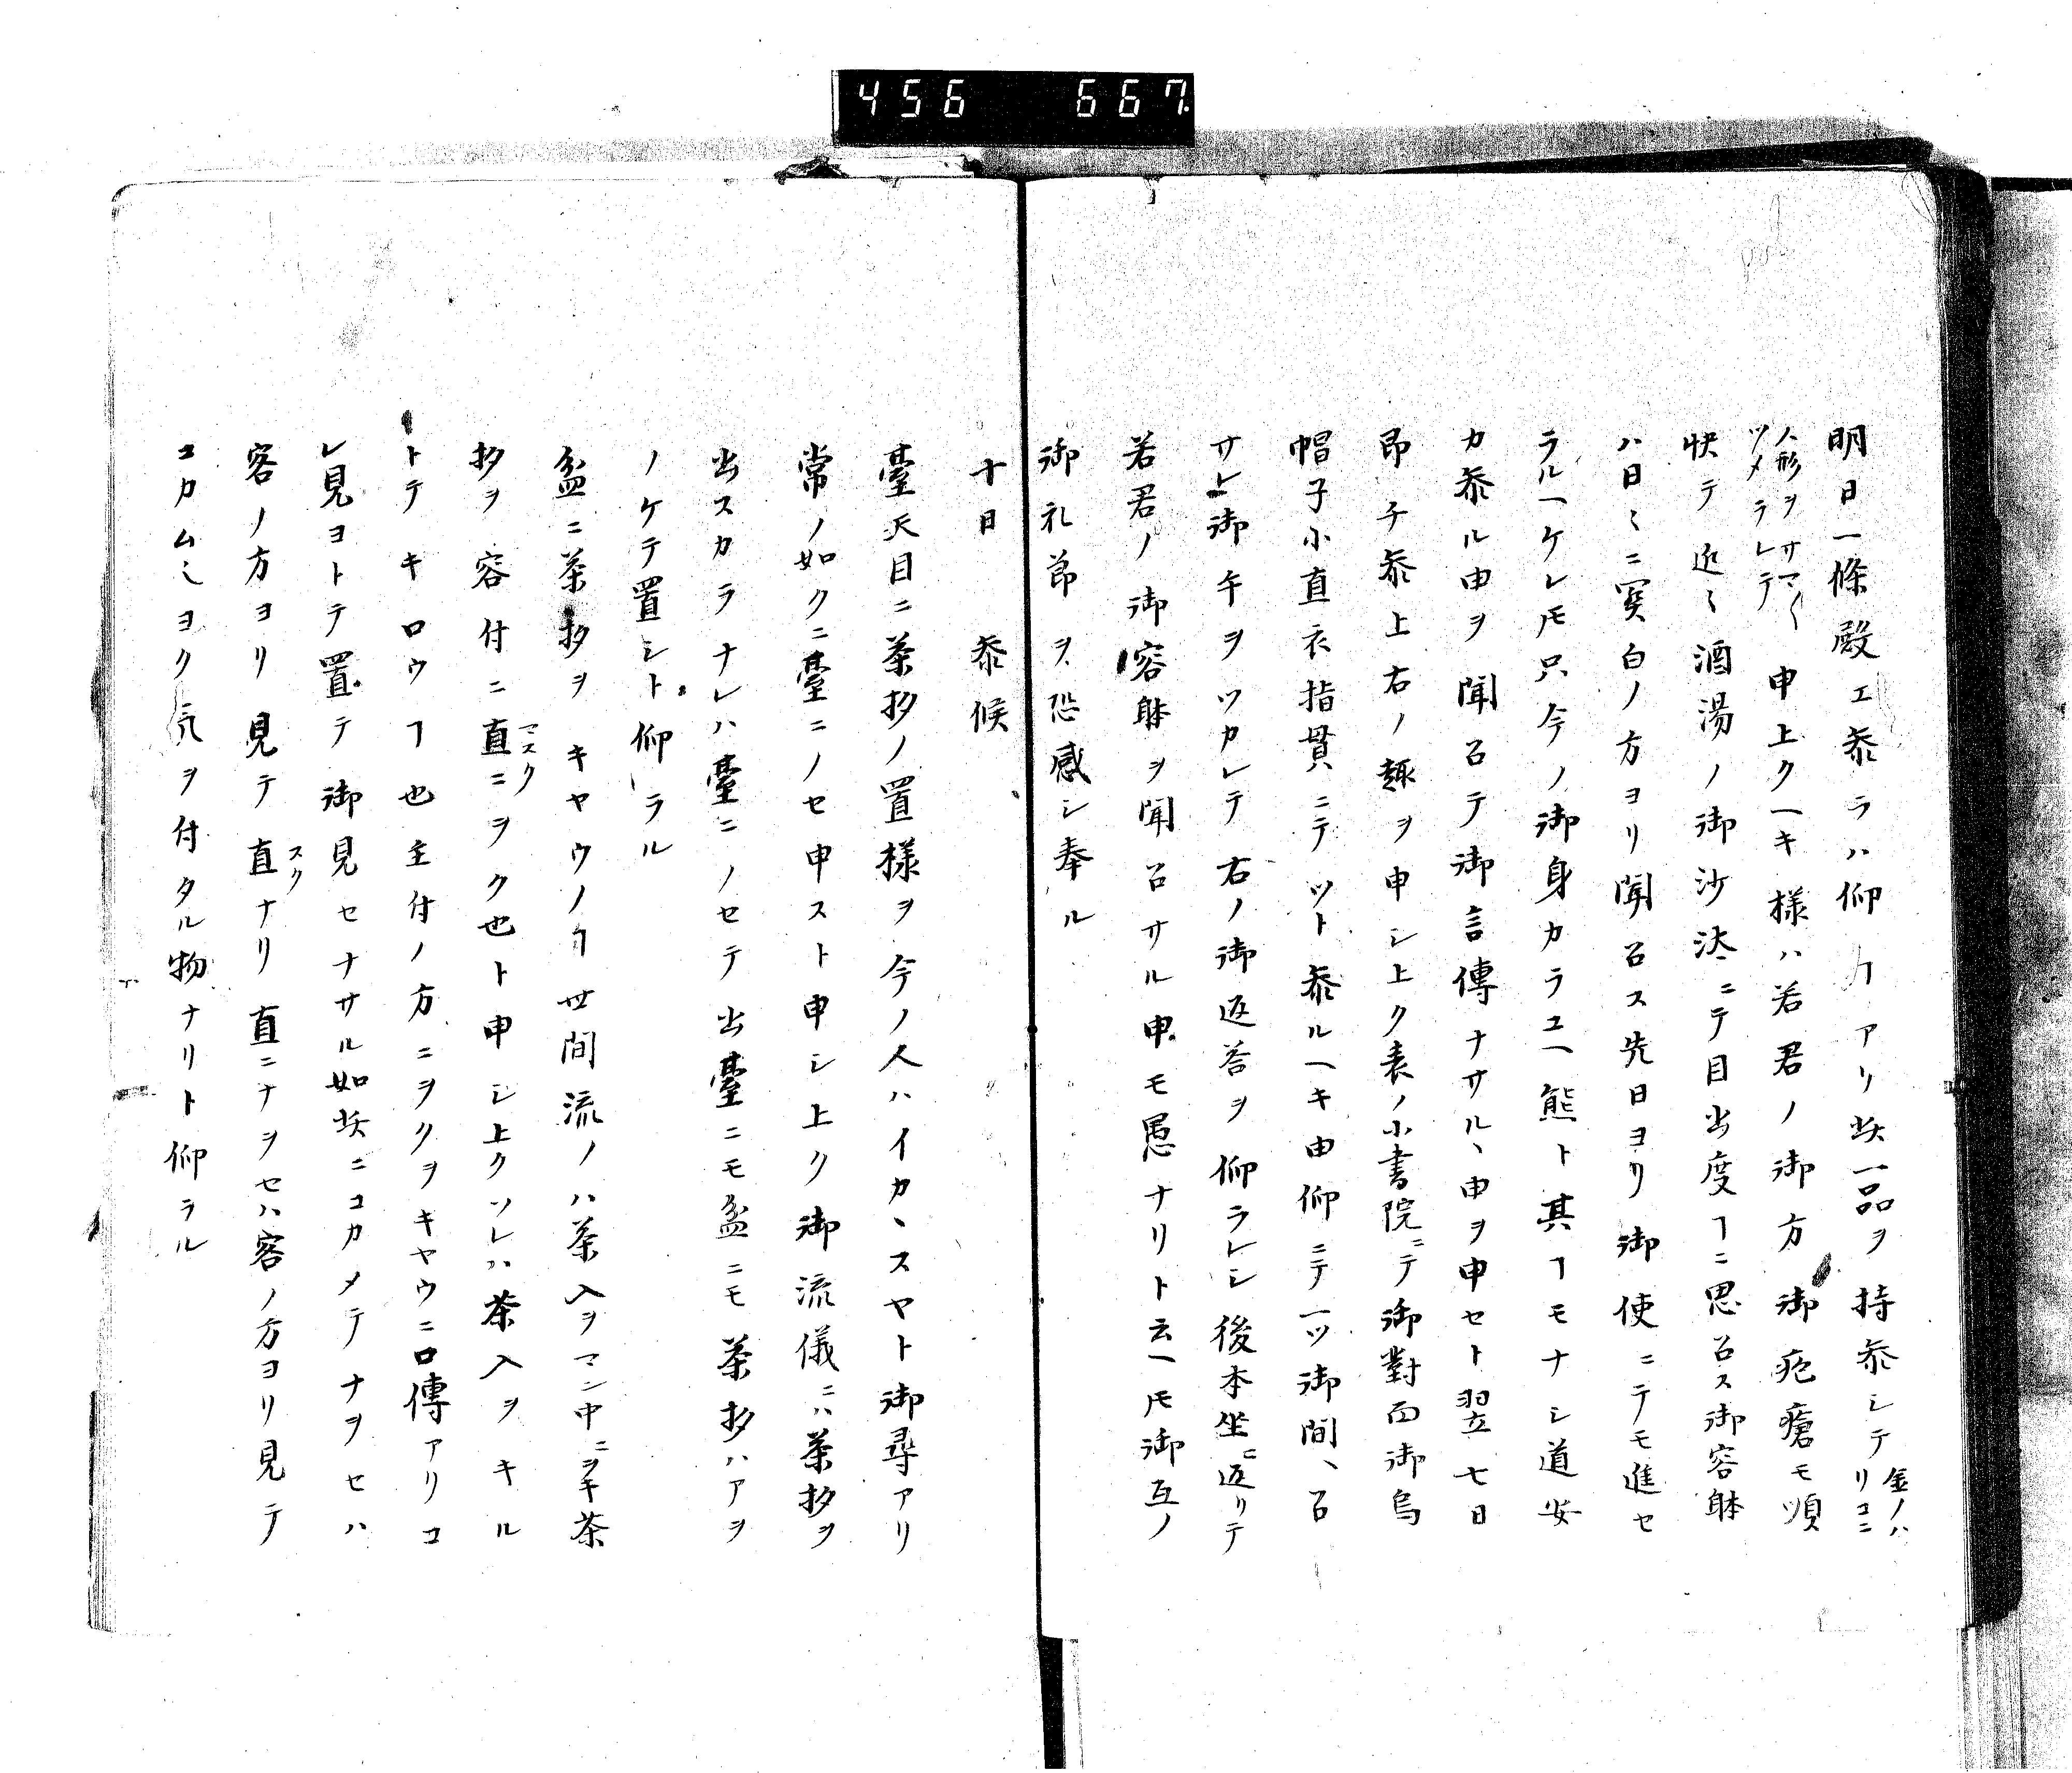 456 667
明日一條殿エ叅ラハ仰ヿアリ此一品ヲ持叅シテ金ノハリコニ
人形ヲサマ〱ツメラレテ申上クヘキ様ハ若君ノ御方御疱瘡モ順
快テ近〻酒湯ノ御沙汰ニテ目出度ヿニ思召ス御容躰
ハ日〻ニ寛白ノ方ヨリ聞召ス先日ヨリ御使ニテモ進セ
ラルヘケレ𪜈只今ノ御身カラユヘ態ト其ヿモナシ道安
カ叅ル由ヲ聞召テ御言傳ナサルヽ由ヲ申セト翌七日
昂チ叅上右ノ趣ヲ申シ上ク表ノ小書院ニテ御對面御烏
帽子小直衣指貫ニテツト叅ルヘキ由仰ニテ一ツ御間ヽ召
サレ御手ヲツカレテ右ノ御返答ヲ仰ラレシ後本坐ニ返リテ
若君ノ御容躰ヲ聞召サル申モ愚ナリト云ヘ𪜈御互ノ
御礼節ヲ恐感シ奉ル
十日 叅候
臺天目ニ茶抄ノ置様ヲ今ノ人ハイカヽスヤト御尋アリ
常ノ如クニ臺ニノセ申スト申シ上ク御流儀ニハ茶抄ヲ
出スカラナレハ臺ニノセテ出臺ニモ盆ニモ茶抄ハアヲ
ノケテ置シト仰ラル
盆ニ茶抄ヲキヤウノヿ世間流ノハ茶入ヲマン中ニヲキ茶
抄ヲ容付ニ直ニマスクヲク也ト申シ上クソレハ茶入ヲキル
トテキロウヿ也主付ノ方ニヲクヲキヤウニ口傳アリコ
レ見ヨトテ置テ御見セナサル如此ニコカメテナヲセハ
客ノ方ヨリ見テ直スクナリ直ニナヲセハ客ノ方ヨリ見テ
コカム〻ヨク気ヲ付タル物ナリト仰ラル